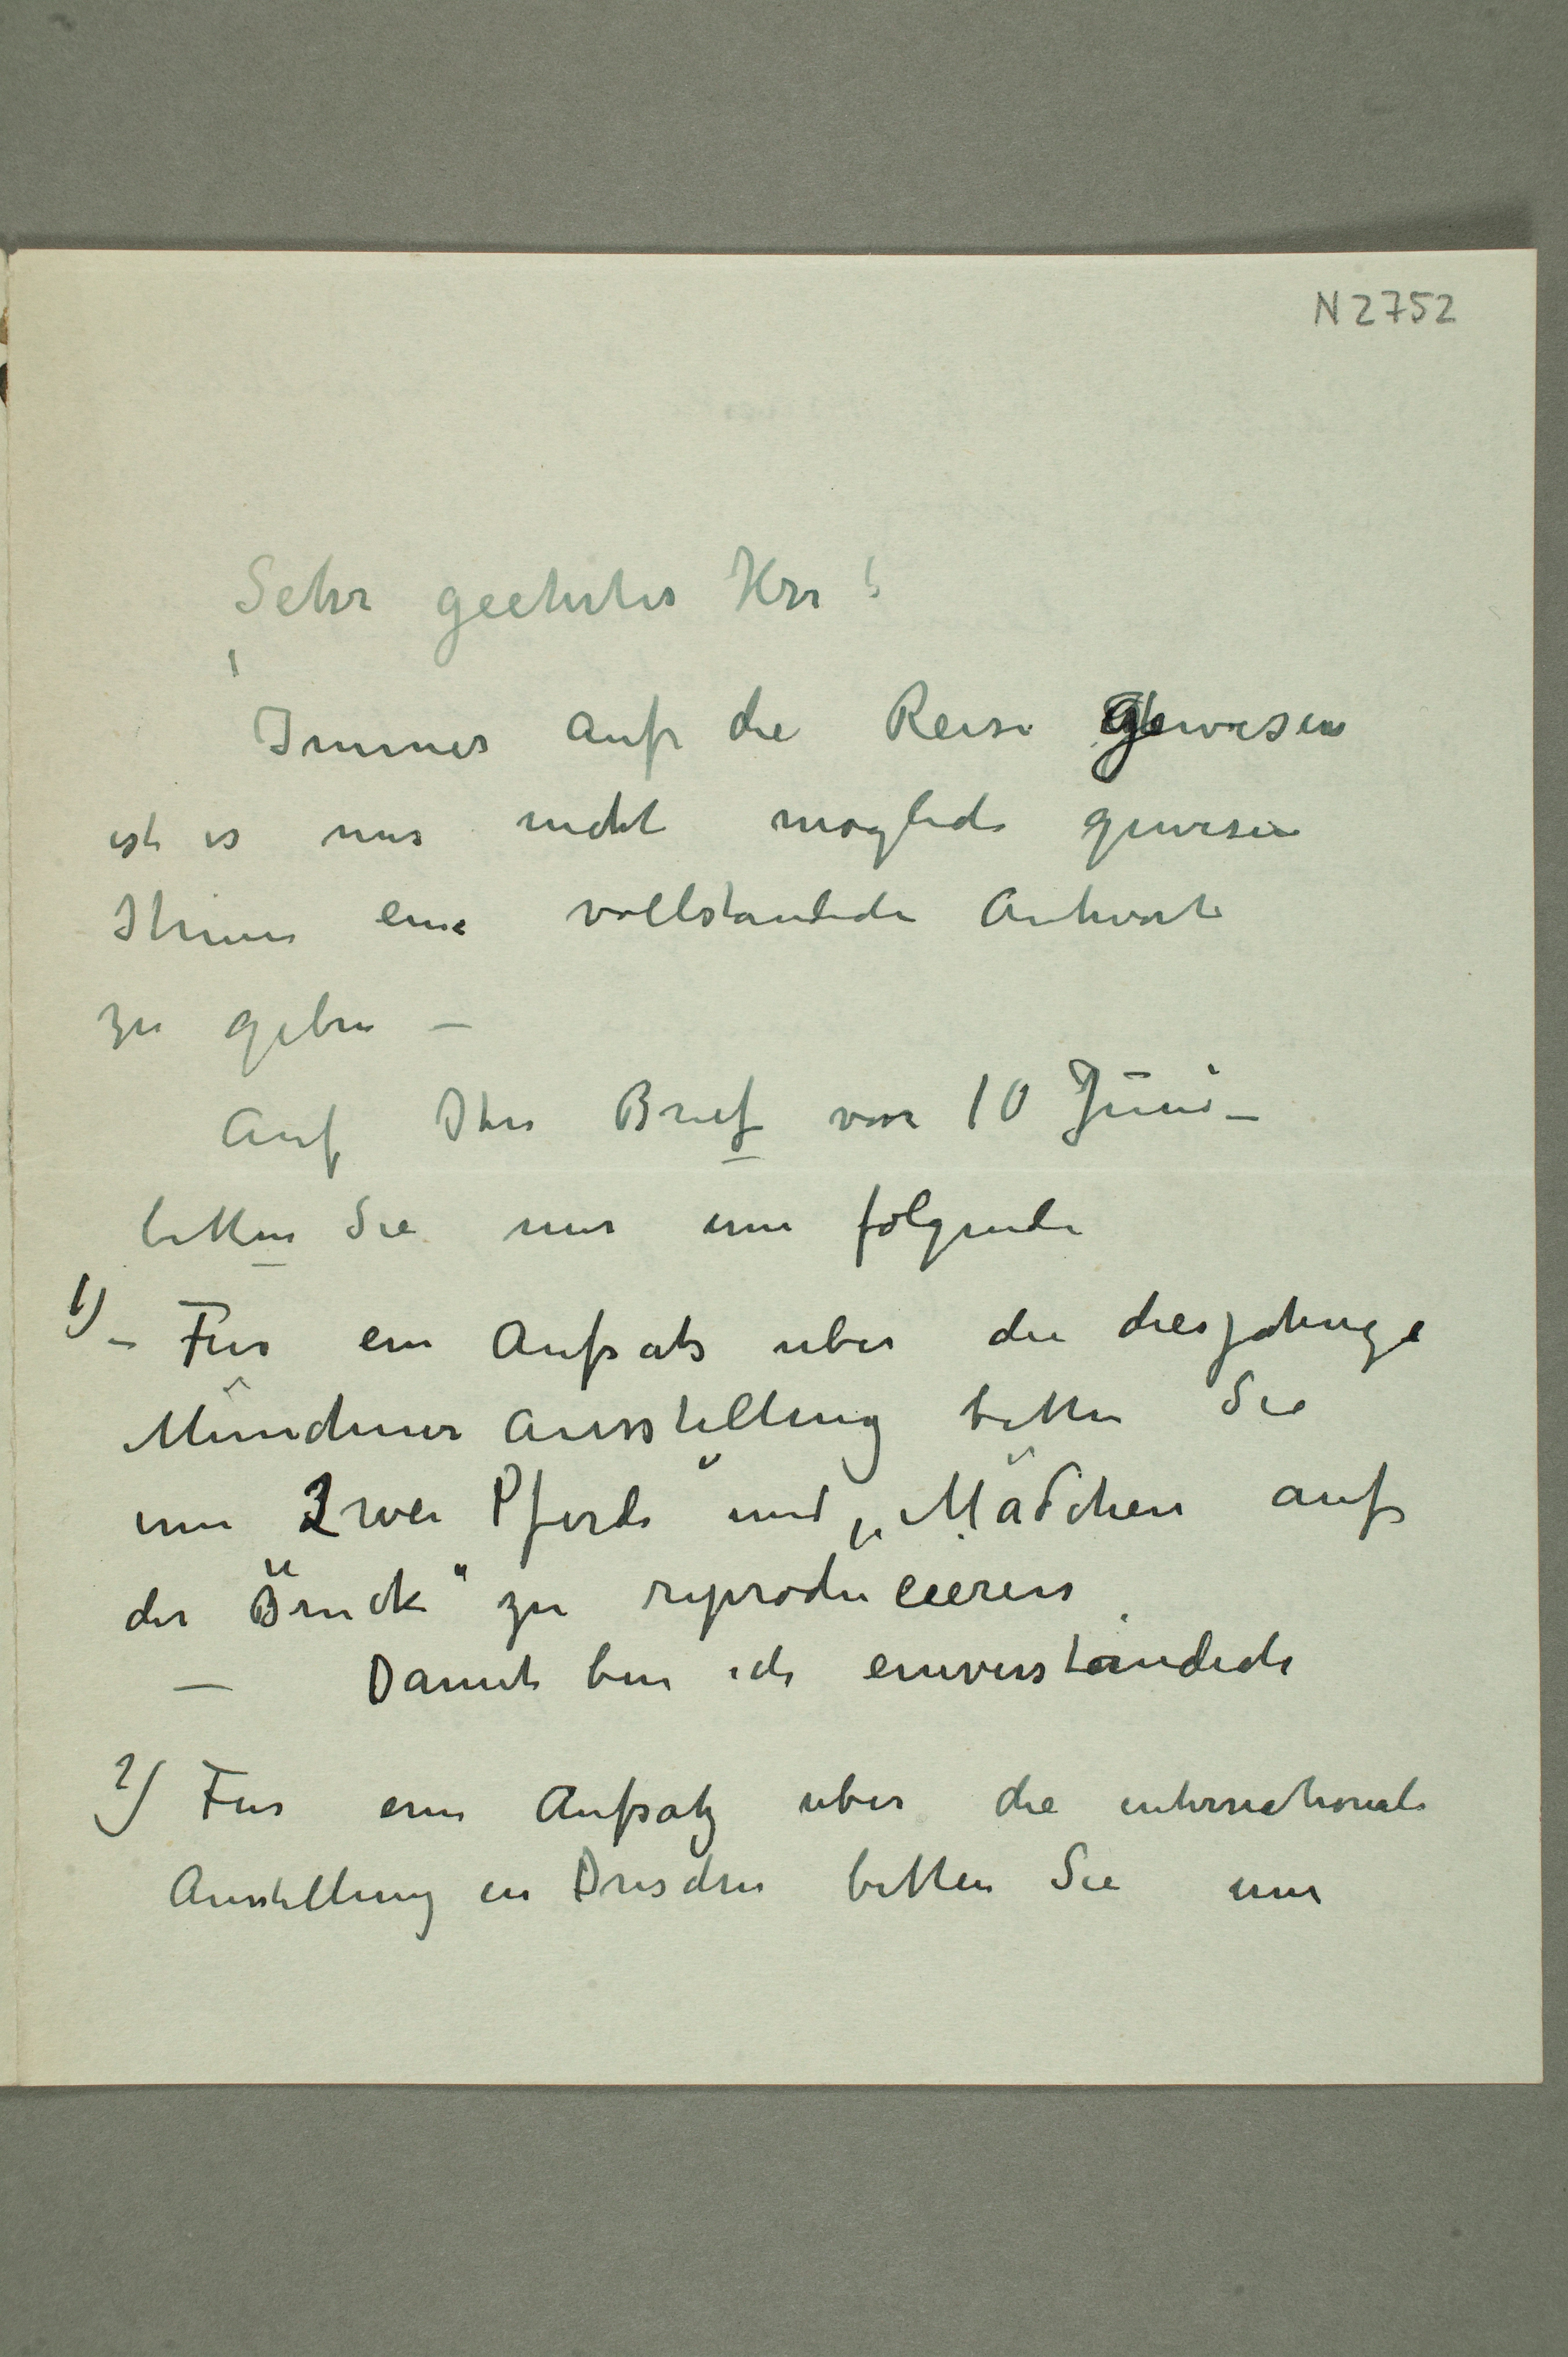 N 2752
Sehr geehrter Herr!
Immer auf die Reise gewesen
ist es mir nicht moglich gewesen
Ihnen eine vollstandich Antwort
zu geben –
Auf Ihr Brief von 10 Juni –
bitten Sie mir um folgende
1) – Für ein Aufsats uber die diesjahrige
Münchner Ausstellung bitten Sie
um Zwei Pferde und „Mädchen auf
der Brück" zu reproducieren
– Damit bin ich einverständich
2) Für ein Aufsatz uber die internationale
Ausstellung in Dresden bitten Sie um